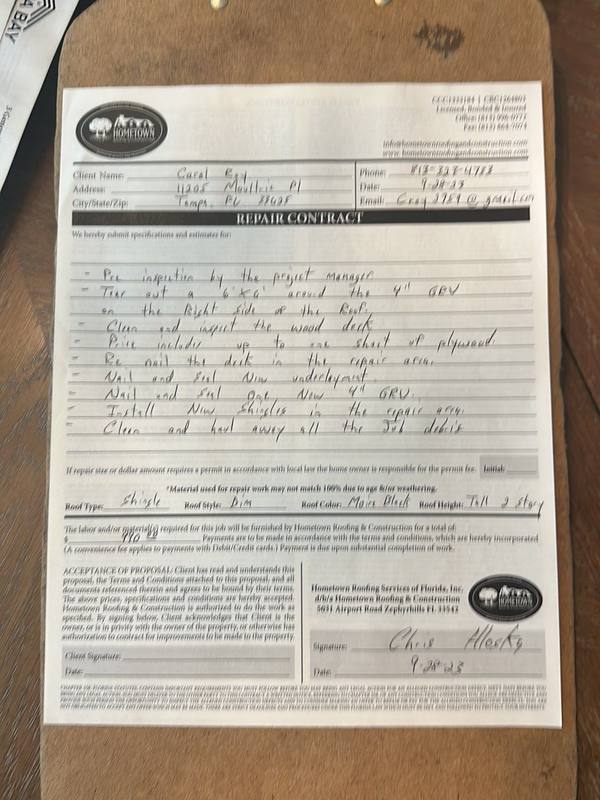 A BAY
HOMETOWN
Licensed, Bonded & Insured
info@hometownroofingandconstruction.com
www.hometownroofingandconstruction.com
Client Name: Carol
Phone:
Address: 11205 Moultrie Pl
Date: 9-28-23
City/State/Zip: Tampa, FL
Email:
REPAIR CONTRACT
We hereby submit specifications and estimates for:
- Pre inspection by the project manager
- Tear out a 6'x6' around the 4" GRV
on the Right side of the Roof.
- Clean and inspect the wood deck
- Price includes up to one sheet of plywood.
- Re nail the deck in the repair area.
- Nail and Seal New underlayment
- Nail and Seal one New 4" GRV.
- Install New Shingles in the repair area.
- Clean and haul away all the Job debris
If repair size or dollar amount requires a permit in accordance with local law the home owner is responsible for the permit fee. Initial:
*Material used for repair work may not match 100% due to age &/or weathering.
Roof Type: Shingle Roof Style: Dim Roof Color: Moire Black Roof Height: Tall 2 Story
The labor and/or material(s) required for this job will be furnished by Hometown Roofing & Construction for a total of:
$ 990.00 Payments are to be made in accordance with the terms and conditions, which are hereby incorporated
(A convenience fee applies to payments with Debit/Credit cards.) Payment is due upon substantial completion of work.
ACCEPTANCE OF PROPOSAL: Client has read and understands this
proposal, the Terms and Conditions attached to this proposal, and all
documents referenced therein and agrees to be bound by their terms.
The above prices, specifications and conditions are hereby accepted.
Hometown Roofing & Construction is authorized to do the work as
specified. By signing below, Client acknowledges that Client is the
owner, or is in privity with the owner of the property, or otherwise has
authorization to contract for improvements to be made to the property.
Client Signature:
Date:
Hometown Roofing Services of Florida, Inc.
d/b/a Hometown Roofing & Construction
5031 Airport Road Zephyrhills FL 33542
HOMETOWN
Signature: Chris Hlosky
Date: 9-28-23